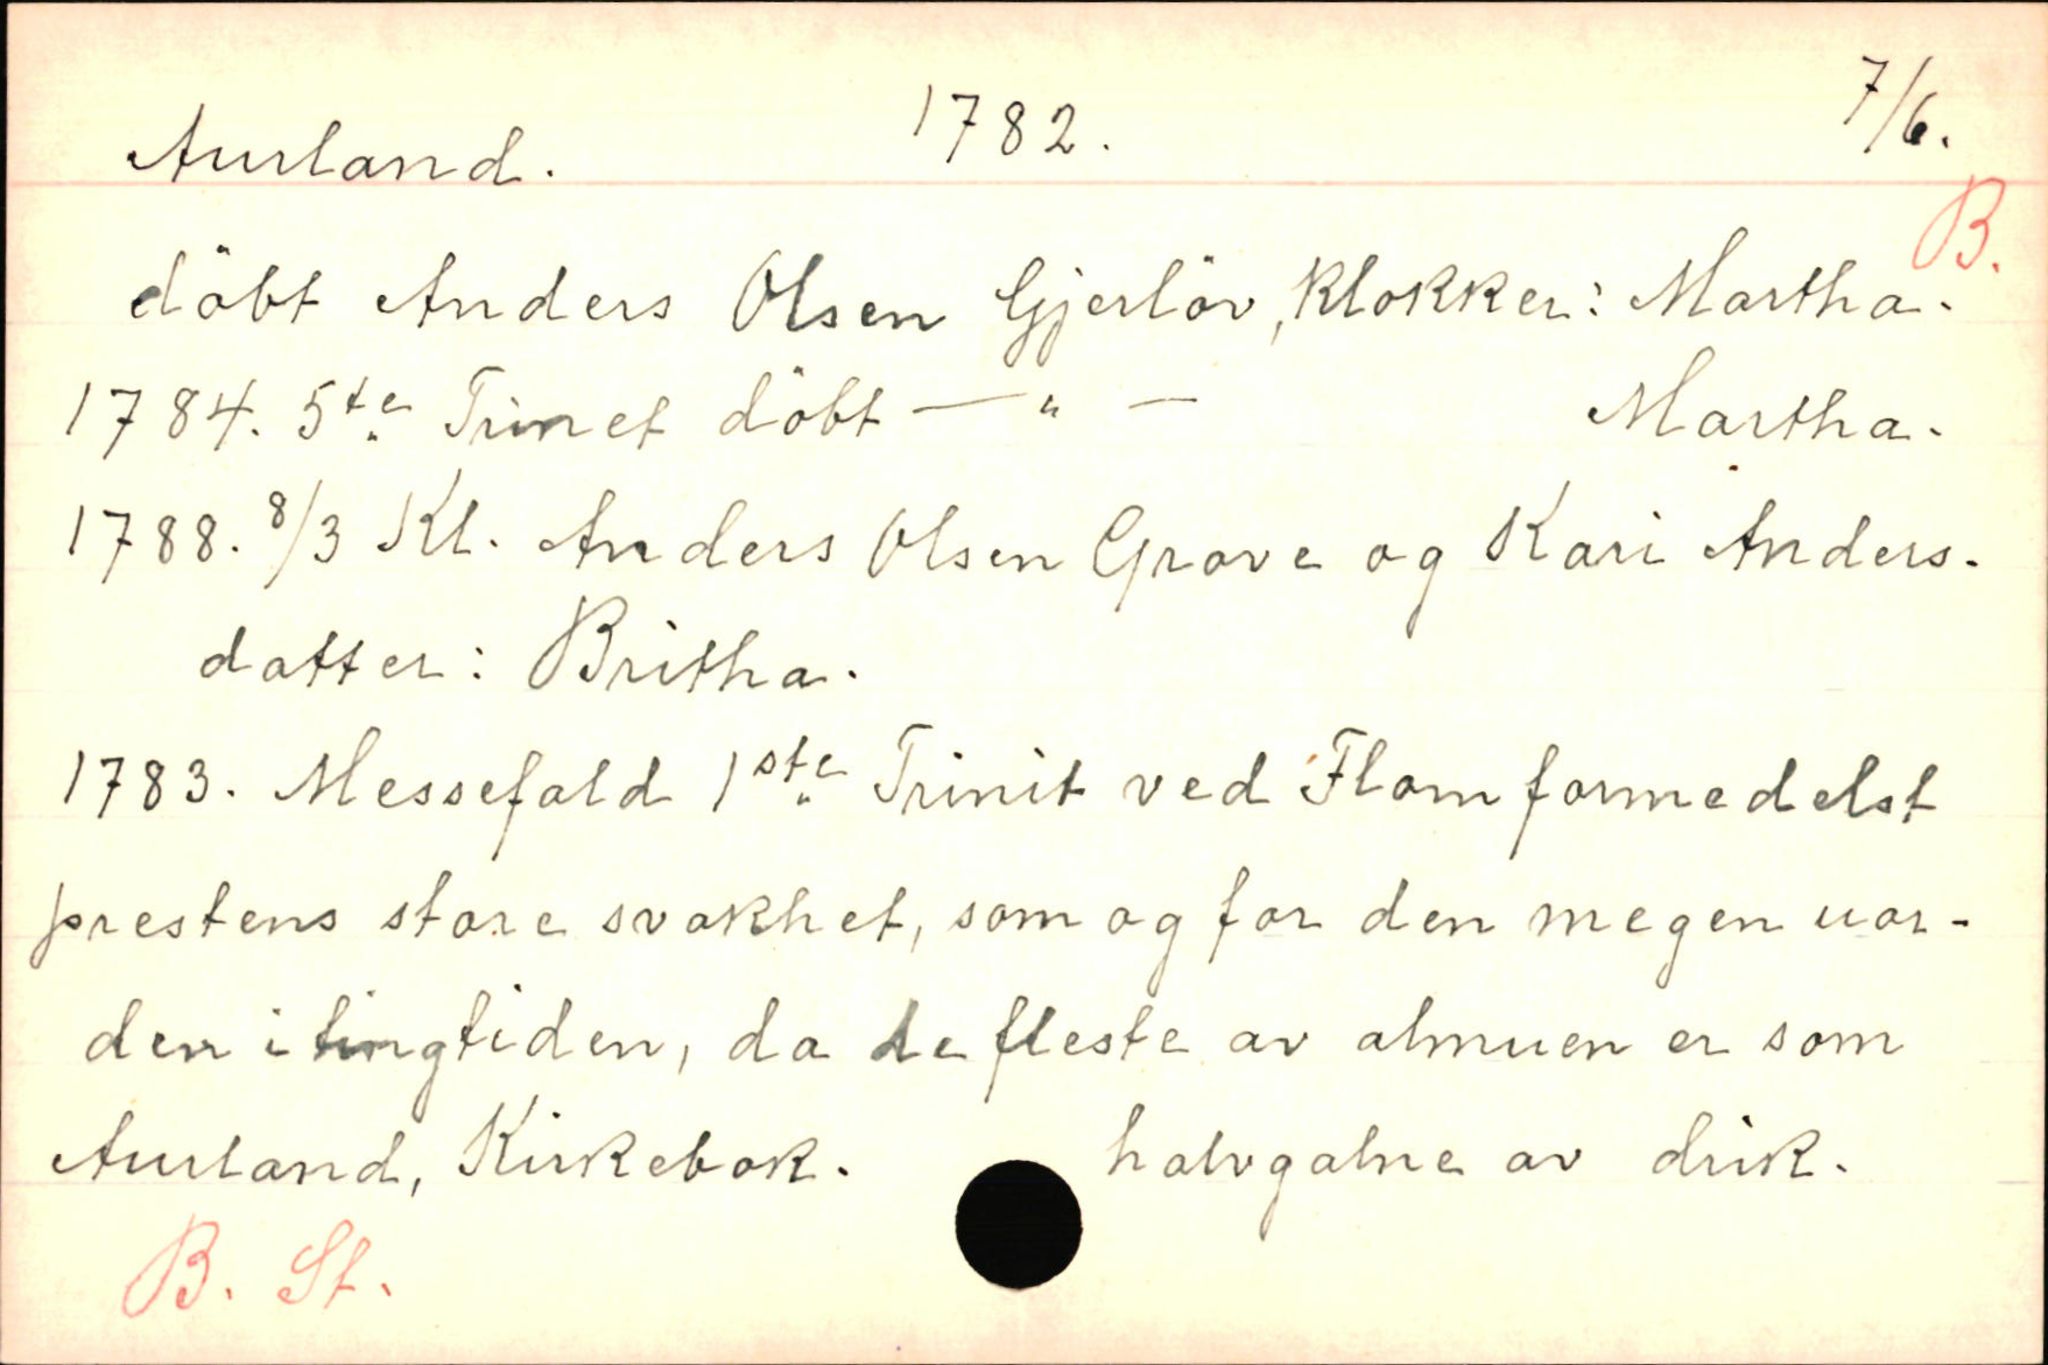 Aurland. 1782. 7/6.
B.
döbt Anders Olsen Gjerlöv, Klokker: Martha.
1784. 5te Trinet döbt — " — Martha.
1788. 8/3 Kl. Anders Olsen Grove og Kari Anders-
datter: Britha.
1783. Messefald 1ste Trinit ved Flom formedelst
prestens store svakhet, som og for den megen uor-
den i tingtiden, da de fleste av almuen er som
Aurland, Kirkebok. halvgalne av drik.
B. St.